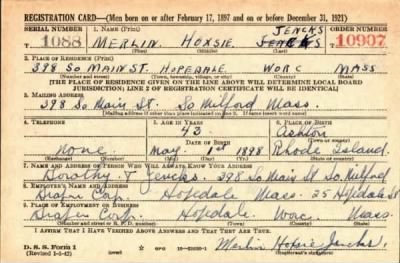 REGISTRATION CARD—(Men born on or after February 17, 1897 and on or before December 31, 1921)
SERIAL NUMBER 1. NAME (Print) ORDER NUMBER
1088 MERLIN HOXSIE JENCKS 10997
(First) (Middle) (Last)
2. PLACE OF RESIDENCE (Print)
398 SO MAIN ST. HOPEDALE WORC MASS
(Number and street) (Town, township, village, or city) (County) (State)
[THE PLACE OF RESIDENCE GIVEN ON THE LINE ABOVE WILL DETERMINE LOCAL BOARD
JURISDICTION; LINE 2 OF REGISTRATION CERTIFICATE WILL BE IDENTICAL]
3. MAILING ADDRESS
398 So Main St. So Milford Mass.
[Mailing address if other than place indicated on line 2. If same insert word same]
4. TELEPHONE 5. AGE IN YEARS 6. PLACE OF BIRTH
43 Ashton
DATE OF BIRTH (Town or county)
None May 1898 Rhode Island
(Exchange) (Number) (Mo.) (Day) (Yr.) (State or country)
7. NAME AND ADDRESS OF PERSON WHO WILL ALWAYS KNOW YOUR ADDRESS
Dorothy Jencks 398 So Main St So. Milford
8. EMPLOYER'S NAME AND ADDRESS
Draper Corp. Hopedale Mass. 25 Hopedale St
9. PLACE OF EMPLOYMENT OR BUSINESS
Draper Corp. Hopedale Worc. Mass.
(Number and street or R. F. D. number) (Town) (County) (State)
I AFFIRM THAT I HAVE VERIFIED ABOVE ANSWERS AND THAT THEY ARE TRUE.
D. S. S. Form 1
(Revised 1-1-42) (over) GPO Merlin Hoxsie Jencks
(Registrant's signature)